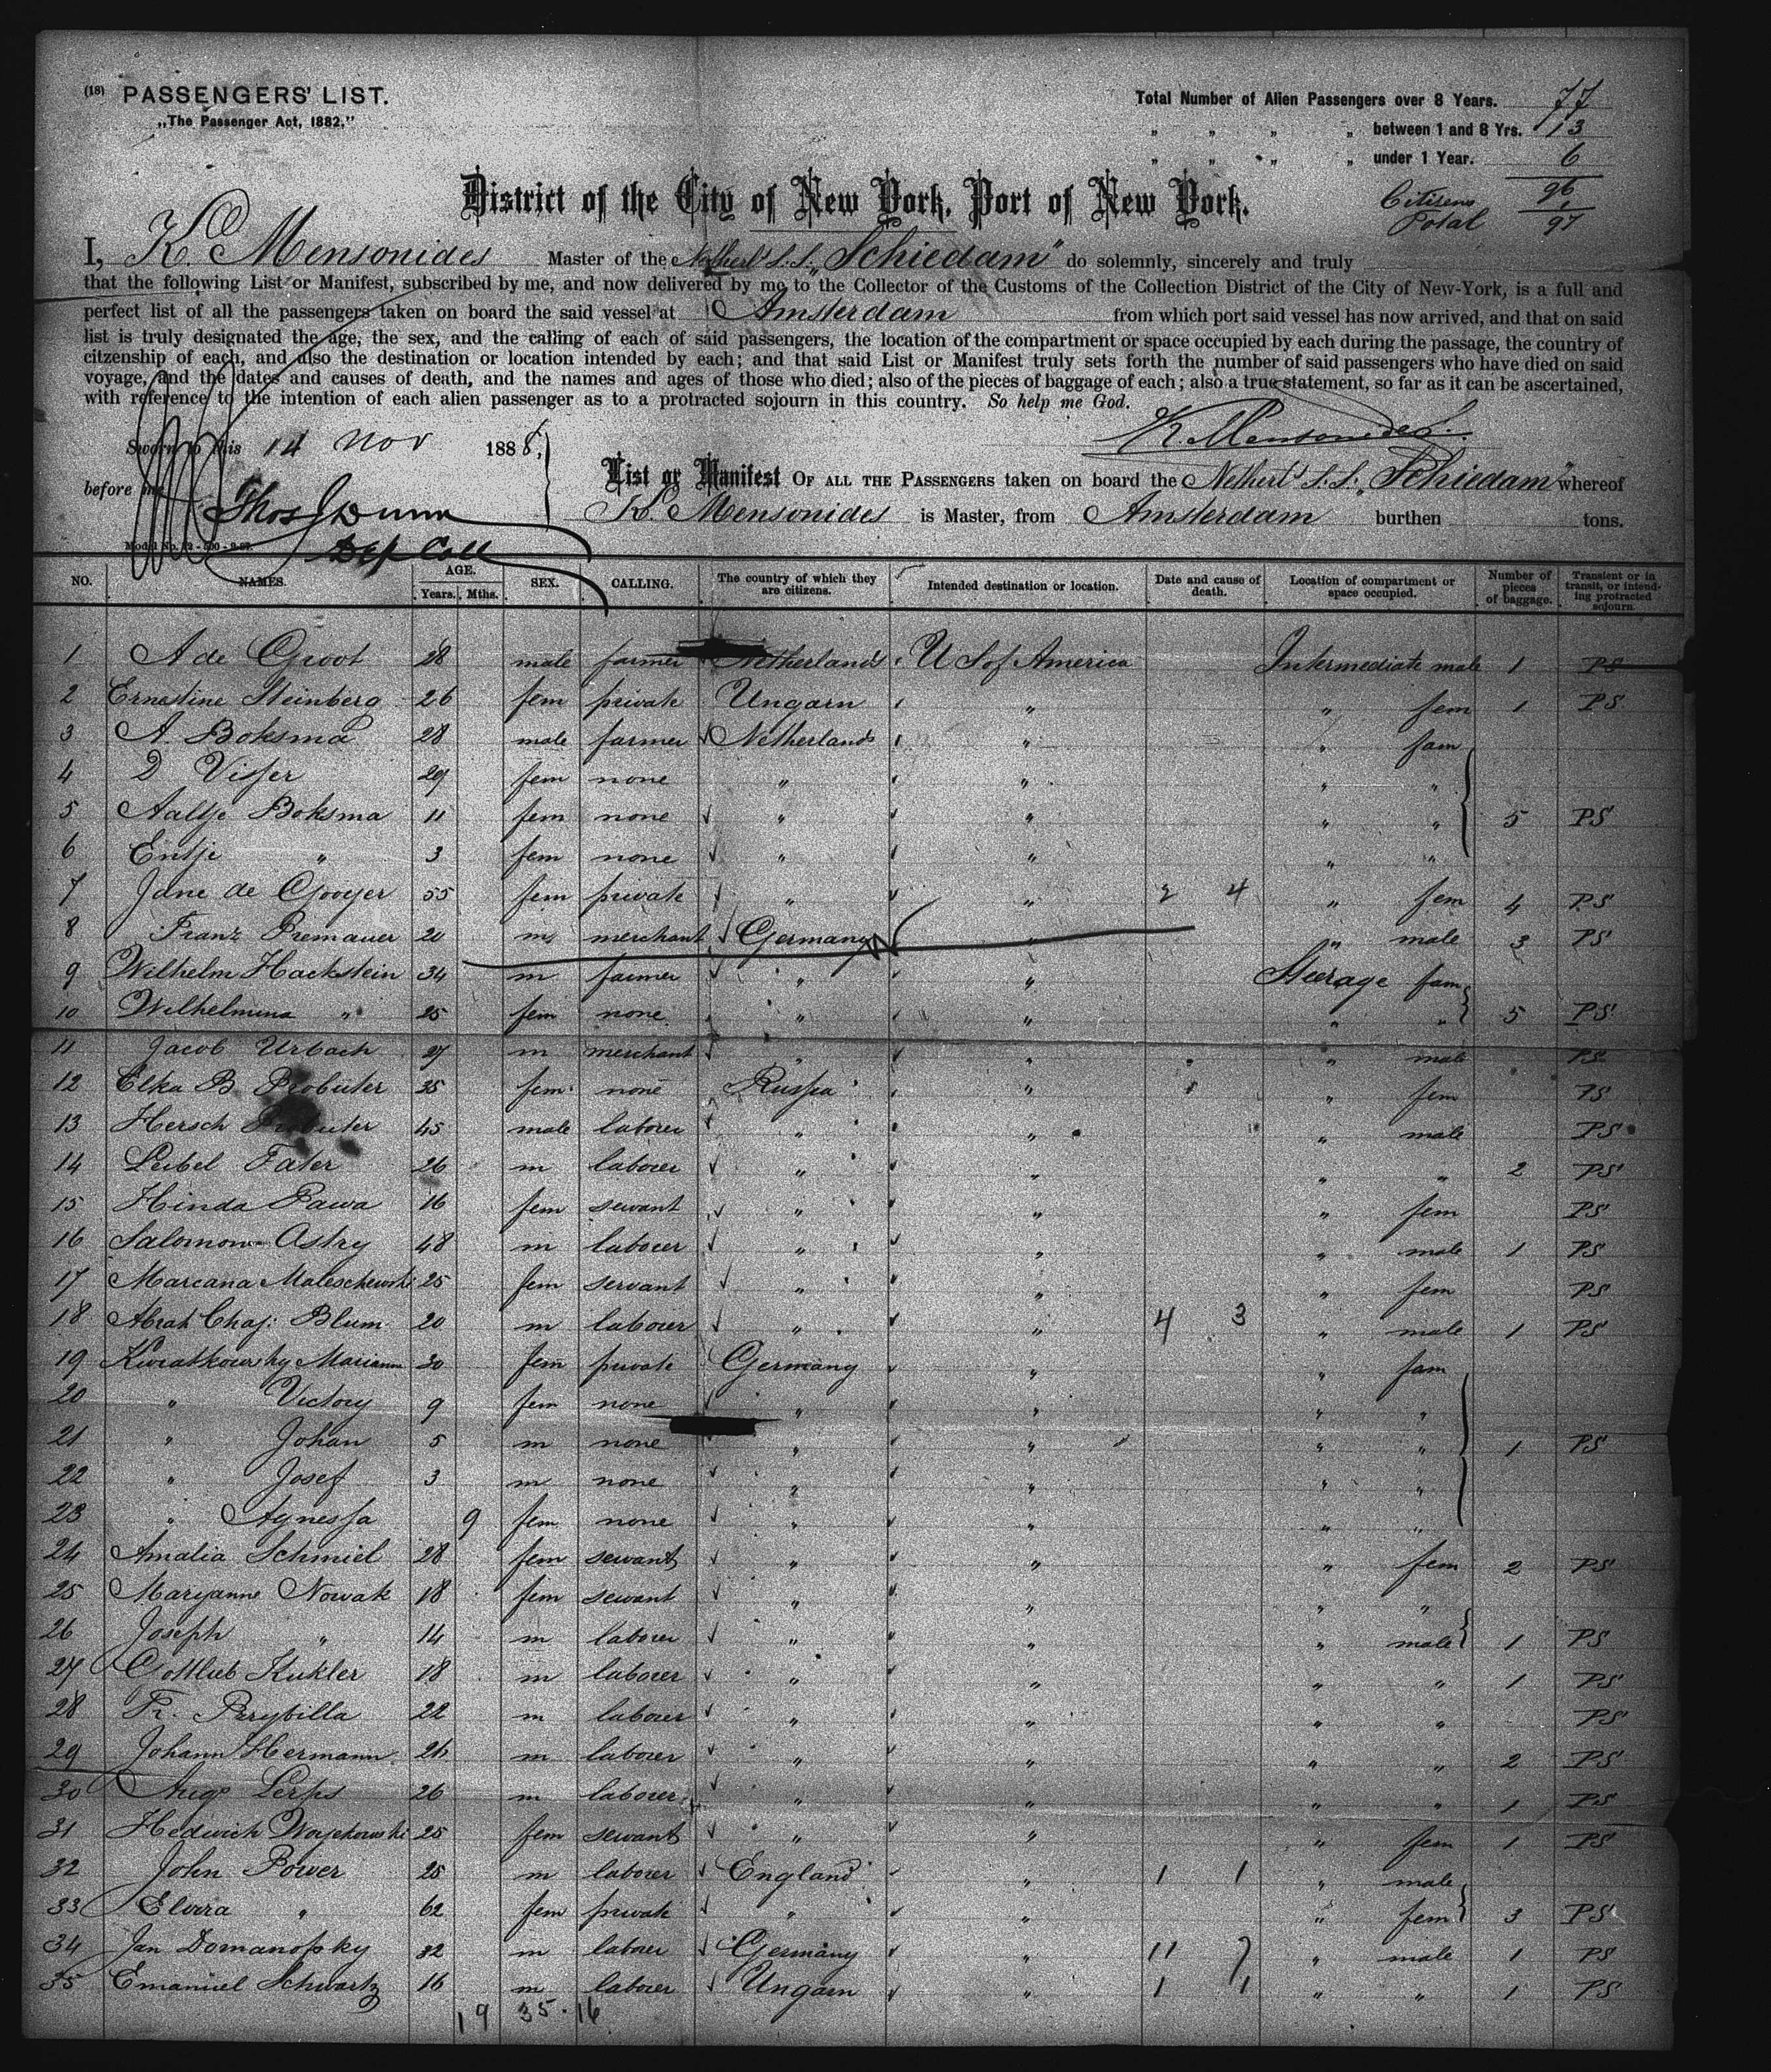 (18) PASSENGERS' LIST.
„The Passenger Act, 1882."
Total Number of Alien Passengers over 8 Years. 77
„ „ „ „ between 1 and 8 Yrs. 13
„ „ „ „ under 1 Year. 6
96
Citizens 1
Total 97
District of the City of New York, Port of New York.
I, K. Mensonides Master of the Netherl. S.S. „Schiedam" do solemnly, sincerely and truly
that the following List or Manifest, subscribed by me, and now delivered by me to the Collector of the Customs of the Collection District of the City of New-York, is a full and
perfect list of all the passengers taken on board the said vessel at Amsterdam from which port said vessel has now arrived, and that on said
list is truly designated the age, the sex, and the calling of each of said passengers, the location of the compartment or space occupied by each during the passage, the country of
citzenship of each, and also the destination or location intended by each; and that said List or Manifest truly sets forth the number of said passengers who have died on said
voyage, and the dates and causes of death, and the names and ages of those who died; also of the pieces of baggage of each; also a true statement, so far as it can be ascertained,
with reference to the intention of each alien passenger as to a protracted sojourn in this country. So help me God.
K. Mensonides
Sworn to this 14 Nov 1888,
before me
Thos J Dunn
Dep Coll
List or Manifest OF ALL THE PASSENGERS taken on board the Netherl. S.S. „Schiedam" whereof
K. Mensonides is Master, from Amsterdam burthen tons.
NO. NAMES. AGE. Years. Mths. SEX. CALLING. The country of which they are citizens. Intended destination or location. Date and cause of death. Location of compartment or space occupied. Number of pieces of baggage. Transient or in transit, or intending protracted sojourn.
1 A de Groot 28 male farmer Netherlands U S of America Intermediate male 1 PS
2 Ernestine Steinberg 26 fem private Ungarn „ „ fem 1 PS
3 A. Boksma 28 male farmer Netherlands „ „ fam
4 D Visser 29 fem none „ „ „ „
5 Aaltje Boksma 11 fem none „ „ „ „ 5 PS
6 Entje „ 3 fem none „ „ „ „
7 Jane de Gooyer 55 fem private „ „ 2 4 „ fem 4 PS
8 Franz Premauer 20 m merchant Germany „ „ male 3 PS
9 Wilhelm Hackstein 34 m farmer „ „ Steerage fam
10 Wilhelmina „ 25 fem none „ „ „ „ 5 PS
11 Jacob Urbach 27 m merchant „ „ „ male PS
12 Elka B Probuter 35 fem none Russia „ „ fem PS
13 Hersch 45 male laborer „ „ „ male PS
14 Leibel Fater 26 m laborer „ „ „ „ 2 PS
15 Hinda Pawa 16 fem servant „ „ „ fem PS
16 Salomon Astry 48 m laborer „ „ „ male 1 PS
17 Marcana Maleschewski 25 fem servant „ „ „ fem PS
18 Abrah Chaj: Blum 20 m laborer „ „ 4 3 „ male 1 PS
19 Kwiatkowsky Mariann 30 fem private Germany „ „ fam
20 „ Victory 9 fem none „ „ „ „
21 „ Johan 5 m none „ „ „ „ 1 PS
22 „ Josef 3 m none „ „ „ „
23 „ Agnessa 9 fem none „ „ „ „
24 Amalia Schmiel 28 fem servant „ „ „ fem 2 PS
25 Maryanne Nowak 18 fem servant „ „ „ „
26 Joseph „ 14 m laborer „ „ „ male 1 PS
27 Gottlieb Kukler 18 m laborer „ „ „ „ 1 PS
28 Fr. Przybilla 22 m laborer „ „ „ „ PS
29 Johann Hermann 26 m laborer „ „ „ „ 2 PS
30 Aug. Lerps 26 m laborer „ „ „ „ 1 PS
31 Hedwich 25 fem servant „ „ „ fem 1 PS
32 John Power 25 m laborer England „ 1 1 „ male
33 Elvira „ 62 fem private „ „ „ fem 3 PS
34 Jan Domanofsky 32 m laborer Germany „ 11 7 „ male 1 PS
35 Emanuel Schwartz 16 m laborer Ungarn „ 1 1 „ „ 1 PS
19 35 · 16